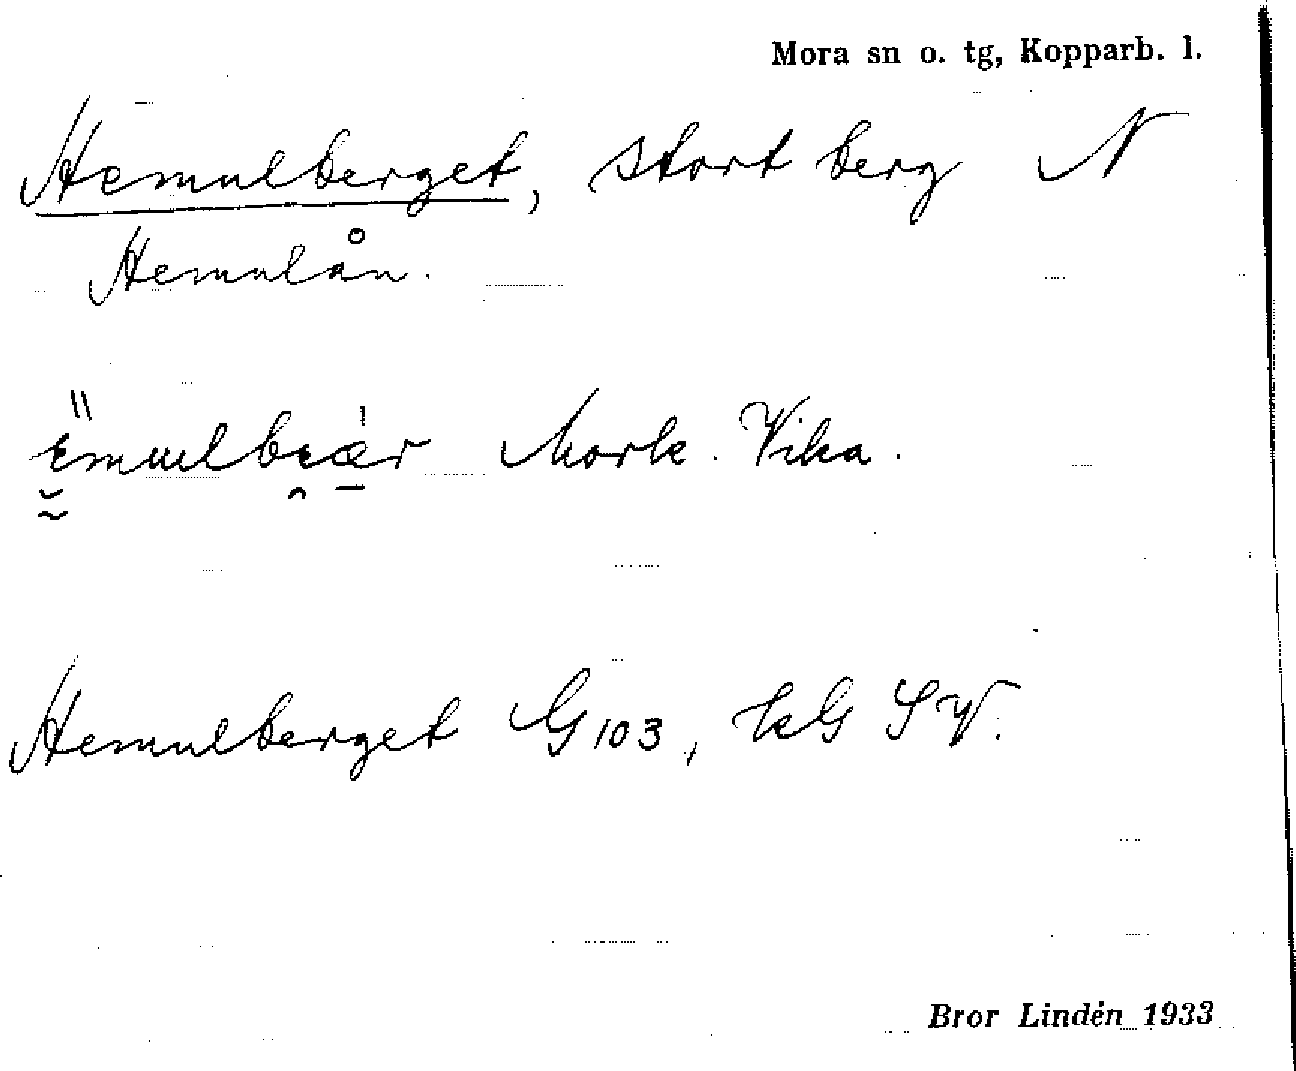 Mora sn o. tg, Kopparb. l.
Hemulberget, stort berg N
Hemulån.
Vika.
Hemulberget G 103, SV.
Bror Lindén 1933